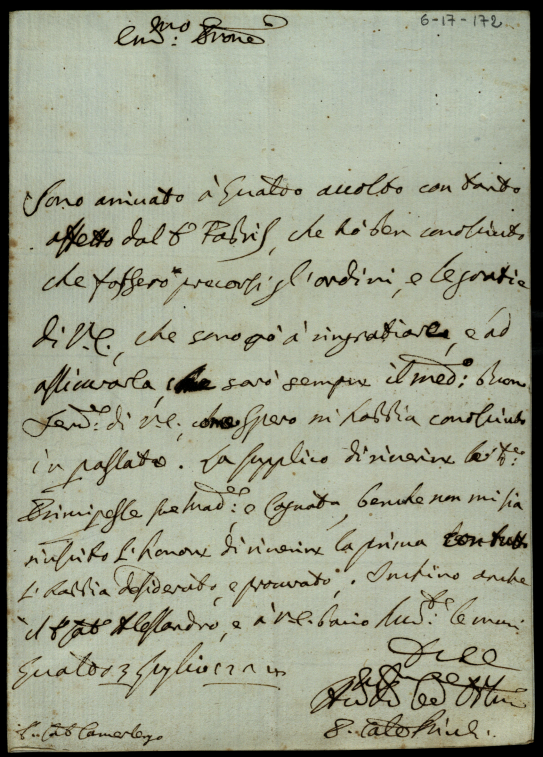 6-17-172
Em.mo Prone
Sono arrivato à Gualdo accolto con tanto
affetto dal Sr Fabrij, che hò ben conosciuto
che fossero precorsi gl'ordini, e le gratie
di V.E., che sono quà à ringratiarla, e ad
assicurarla, che sarò sempre il med.o buon
Serv.e di V.E., come spero mi habbia conosciuto
in passato. La supplico di riverire le
Principesse sue Madre, e Cognata, benche non mi sia
riuscito l'honore di riverire la prima con tutto
l'habbia desiderato, e procurato. Inchino anche
il Alessandro, e à V.E. bacio hum.te le mani
Gualdo 3 Luglio
Di V.E.
Camerlengo